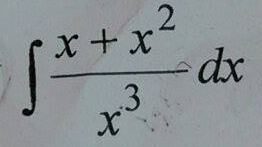 ∫ (x + x²)/x³ dx